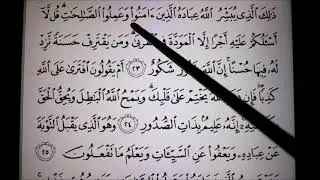 ذَٰلِكَ ٱلَّذِى يُبَشِّرُ ٱللَّهُ عِبَادَهُ ٱلَّذِينَ ءَامَنُوا۟ وَعَمِلُوا۟ ٱلصَّـٰلِحَـٰتِ ۗ قُل لَّآ
أَسْـَٔلُكُمْ عَلَيْهِ أَجْرًا إِلَّا ٱلْمَوَدَّةَ فِى ٱلْقُرْبَىٰ ۗ وَمَن يَقْتَرِفْ حَسَنَةً نَّزِدْ
لَهُۥ فِيهَا حُسْنًا ۚ إِنَّ ٱللَّهَ شَكُورٌ ٢٣ أَمْ يَقُولُونَ ٱفْتَرَىٰ عَلَى ٱللَّهِ
كَذِبًا ۖ ٱللَّهُ يَخْتِمْ عَلَىٰ قَلْبِكَ ۗ وَيَمْحُ ٱللَّهُ ٱلْبَـٰطِلَ وَيُحِقُّ ٱلْحَقَّ
بِكَلِمَـٰتِهِۦٓ ۚ إِنَّهُۥ عَلِيمٌۢ بِذَاتِ ٱلصُّدُورِ ٢٤ وَهُوَ ٱلَّذِى يَقْبَلُ ٱلتَّوْبَةَ
عَنْ عِبَادِهِۦ وَيَعْفُوا۟ عَنِ ٱلسَّيِّـَٔاتِ وَيَعْلَمُ مَا تَفْعَلُونَ ٢٥